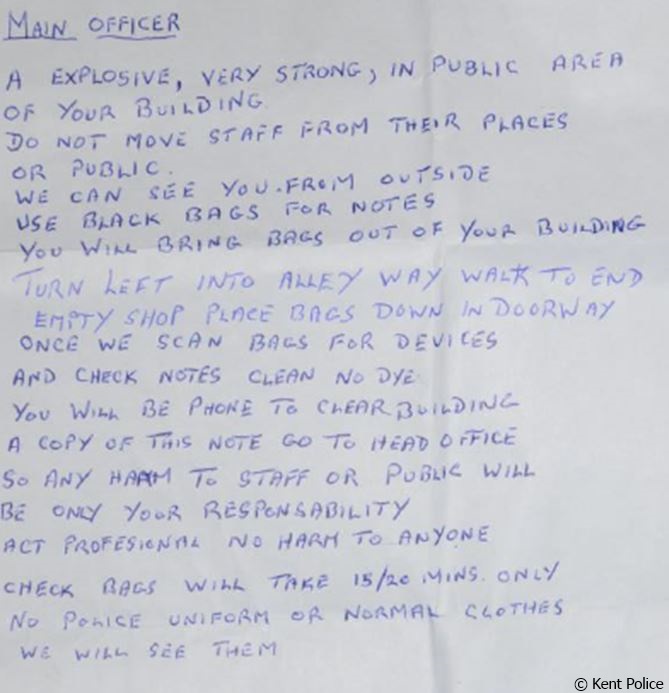 MAIN OFFICER
A EXPLOSIVE, VERY STRONG, IN PUBLIC AREA
OF YOUR BUILDING
DO NOT MOVE STAFF FROM THEIR PLACES
OR PUBLIC.
WE CAN SEE YOU.FROM OUTSIDE
USE BLACK BAGS FOR NOTES
YOU WILL BRING BAGS OUT OF YOUR BUILDING
TURN LEFT INTO ALLEY WAY WALK TO END
EMPTY SHOP PLACE BAGS DOWN IN DOORWAY
ONCE WE SCAN BAGS FOR DEVICES
AND CHECK NOTES CLEAN NO DYE
YOU WILL BE PHONE TO CLEAR BUILDING
A COPY OF THIS NOTE GO TO HEAD OFFICE
SO ANY HARM TO STAFF OR PUBLIC WILL
BE ONLY YOUR RESPONSABILITY
ACT PROFESIONAL NO HARM TO ANYONE
CHECK BAGS WILL TAKE 15/20 MINS. ONLY
NO POLICE UNIFORM OR NORMAL CLOTHES
WE WILL SEE THEM
© Kent Police